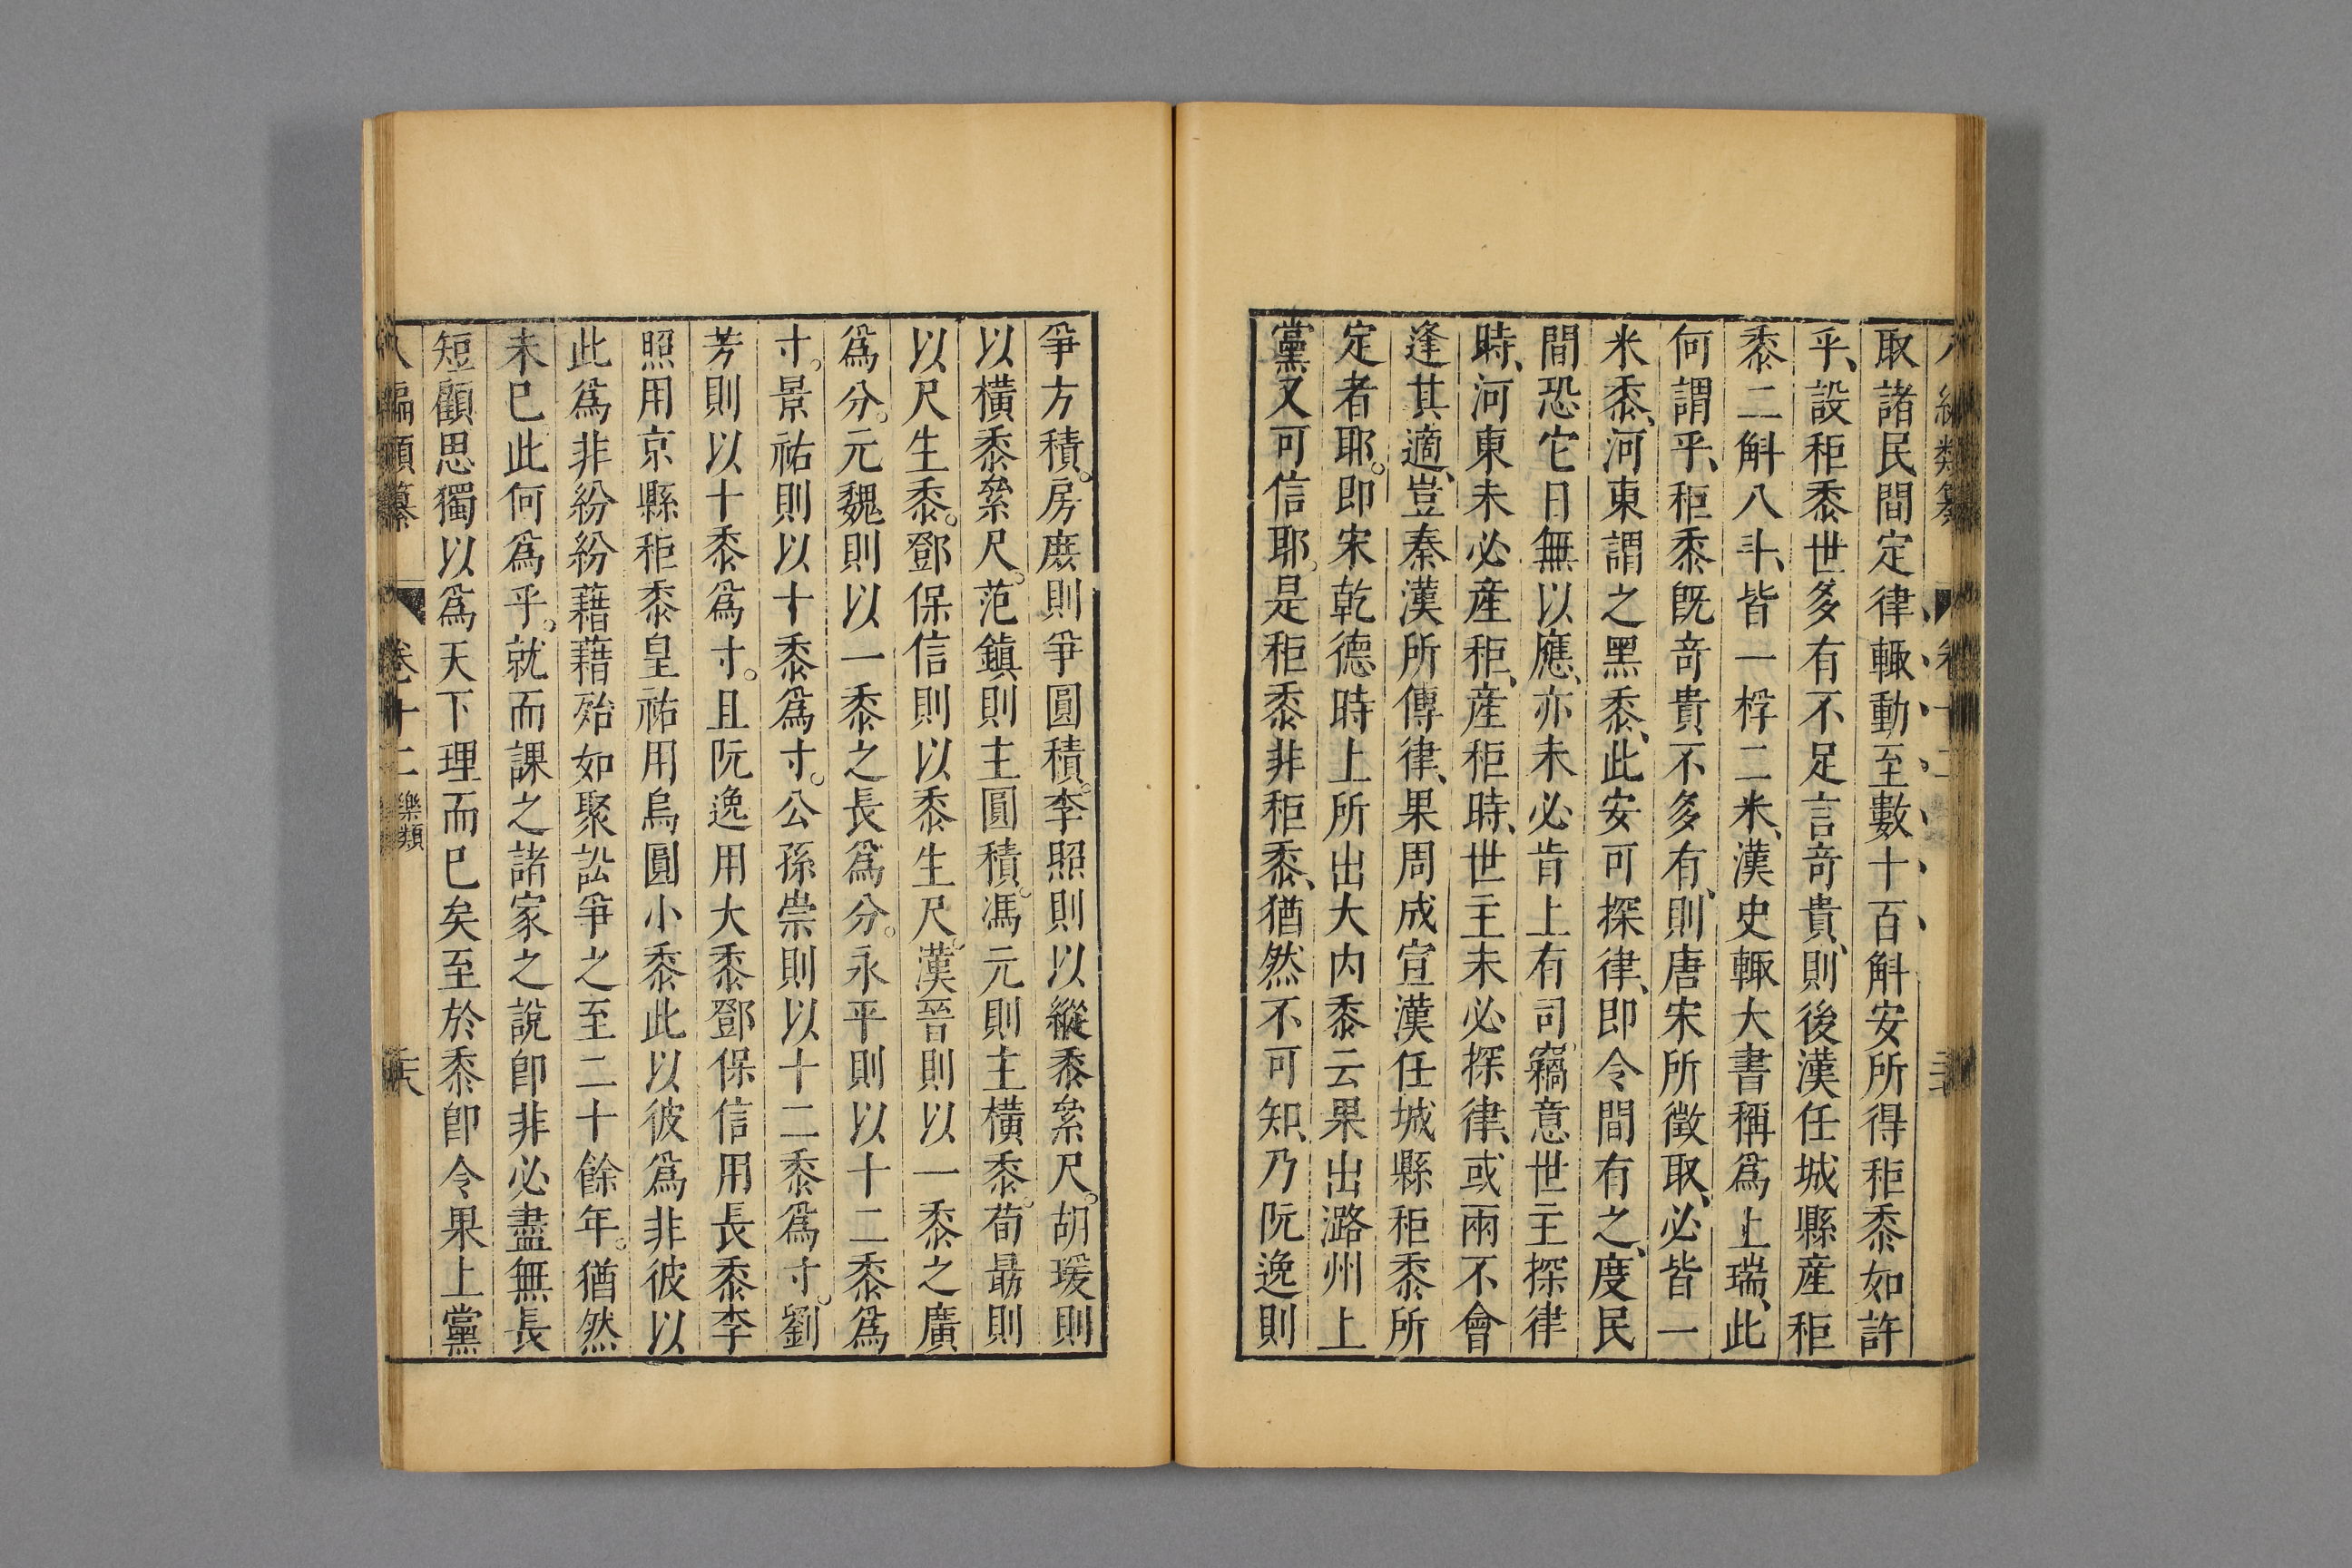 取諸民間定律、輙動至數十百斛、安所得秬黍如許
乎、設秬黍世多有不足言竒貴、則後漢任城縣産秬
黍二斛八斗、皆一稃二米、漢史輙大書稱爲上瑞、此
何謂乎、秬黍旣竒貴不多有、則唐宋所徵取、必皆一
米黍、河東謂之黑黍、此安可探律、即令間有之、度民
間恐它日無以應、亦未必肯上有司、竊意世主探律
時、河東未必産秬、産秬時、世主未必探律、或兩不會
逢其適、豈秦漢所傳律、果周成宣漢任城縣秬黍所
定者耶。即宋乾德時上所出大内黍云果出潞州上
黨又可信耶、是秬黍非秬黍、猶然不可知、乃阮逸則
爭方積。房庶則爭圓積。李照則以縱黍絫尺。胡瑗則
以橫黍絫尺。范鎮則主圓積。馮元則主橫黍。荀勗則
以尺生黍。鄧保信則以黍生尺。漢晉則以一黍之廣
爲分。元魏則以一黍之長爲分。永平則以十二黍爲
寸。景祐則以十黍爲寸。公孫崇則以十二黍爲寸。劉
芳則以十黍爲寸。且阮逸用大黍鄧保信用長黍李
照用京縣秬黍皇祐用烏圓小黍此以彼爲非彼以
此爲非紛紛藉藉殆如聚訟爭之至二十餘年。猶然
未已此何爲乎。就而課之諸家之說卽非必盡無長
短顧思獨以爲天下理而已矣至於黍卽令果上黨
八編類纂 卷十二 樂類 六